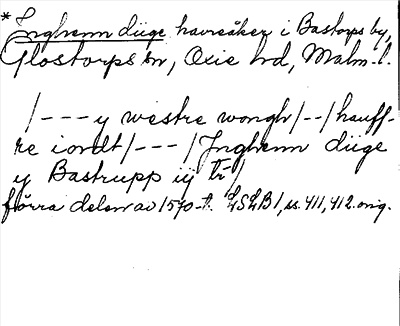 * Inghenn diige havreåker i Bastorps by,
Glostorps sn, Oxie hd, Malm. l.
/--- y westre wongh/--/hauff-
re iordt/---/Inghenn diige
y Bastrupp iij tr/
förra delen av 1570-t. LSLB1, ss. 411, 412. orig.